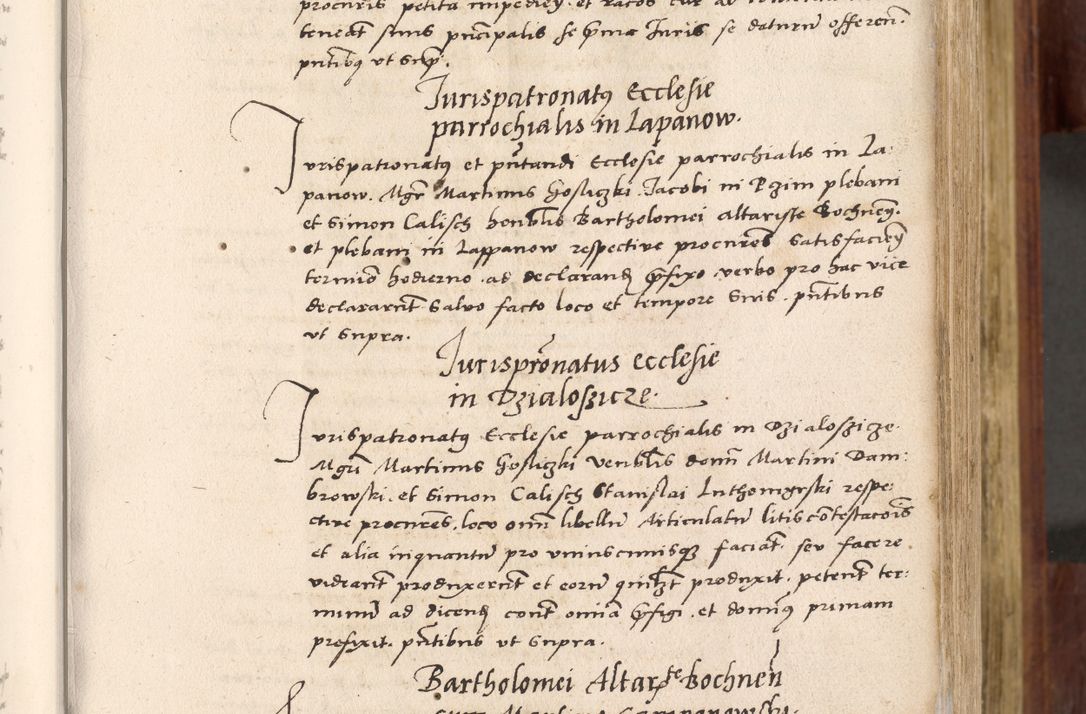 teneat suus principalis se daturum offeren.
pntibus ut supra.
Jurispatronatus Ecclesie
parrochialis in Lapanow.
Jurispatronatus et pntandi Ecclesie parrochialis in La-
panow. Mgr Martinus Gosliczki Jacobi in Dzim plebani
et Simon Calisch honblis Bartholomei altariste Bochnen.
et plebani in Lappanow respective procures satisfacien
termino hodierno ad declarand prefixo verbo pro hac vice
declararunt salvo facto loco et tempore suis. pntibus
ut supra.
Jurispronatus Ecclesie
in Dzialoszicze.
Jurispatronatus Ecclesie parrochialis in Dzialoszicze.
Mgri Martinus Gosliczki venblis domi Martini Dam:
browski. et Simon Calisch Stanislai Luthomyrski respe:
ctive procures. loco omi libellum Articulatum litis contestacois
et alia inquantum pro uniuscuiusque faciat. seu facere
videant produxerunt et eorum quilibet produxit. petent ter:
minum ad dicend cont omia prefigi. et dominus primam
prefixit. pntibus ut supra.
Bartholomei Altarste Bochnen
cum Martino